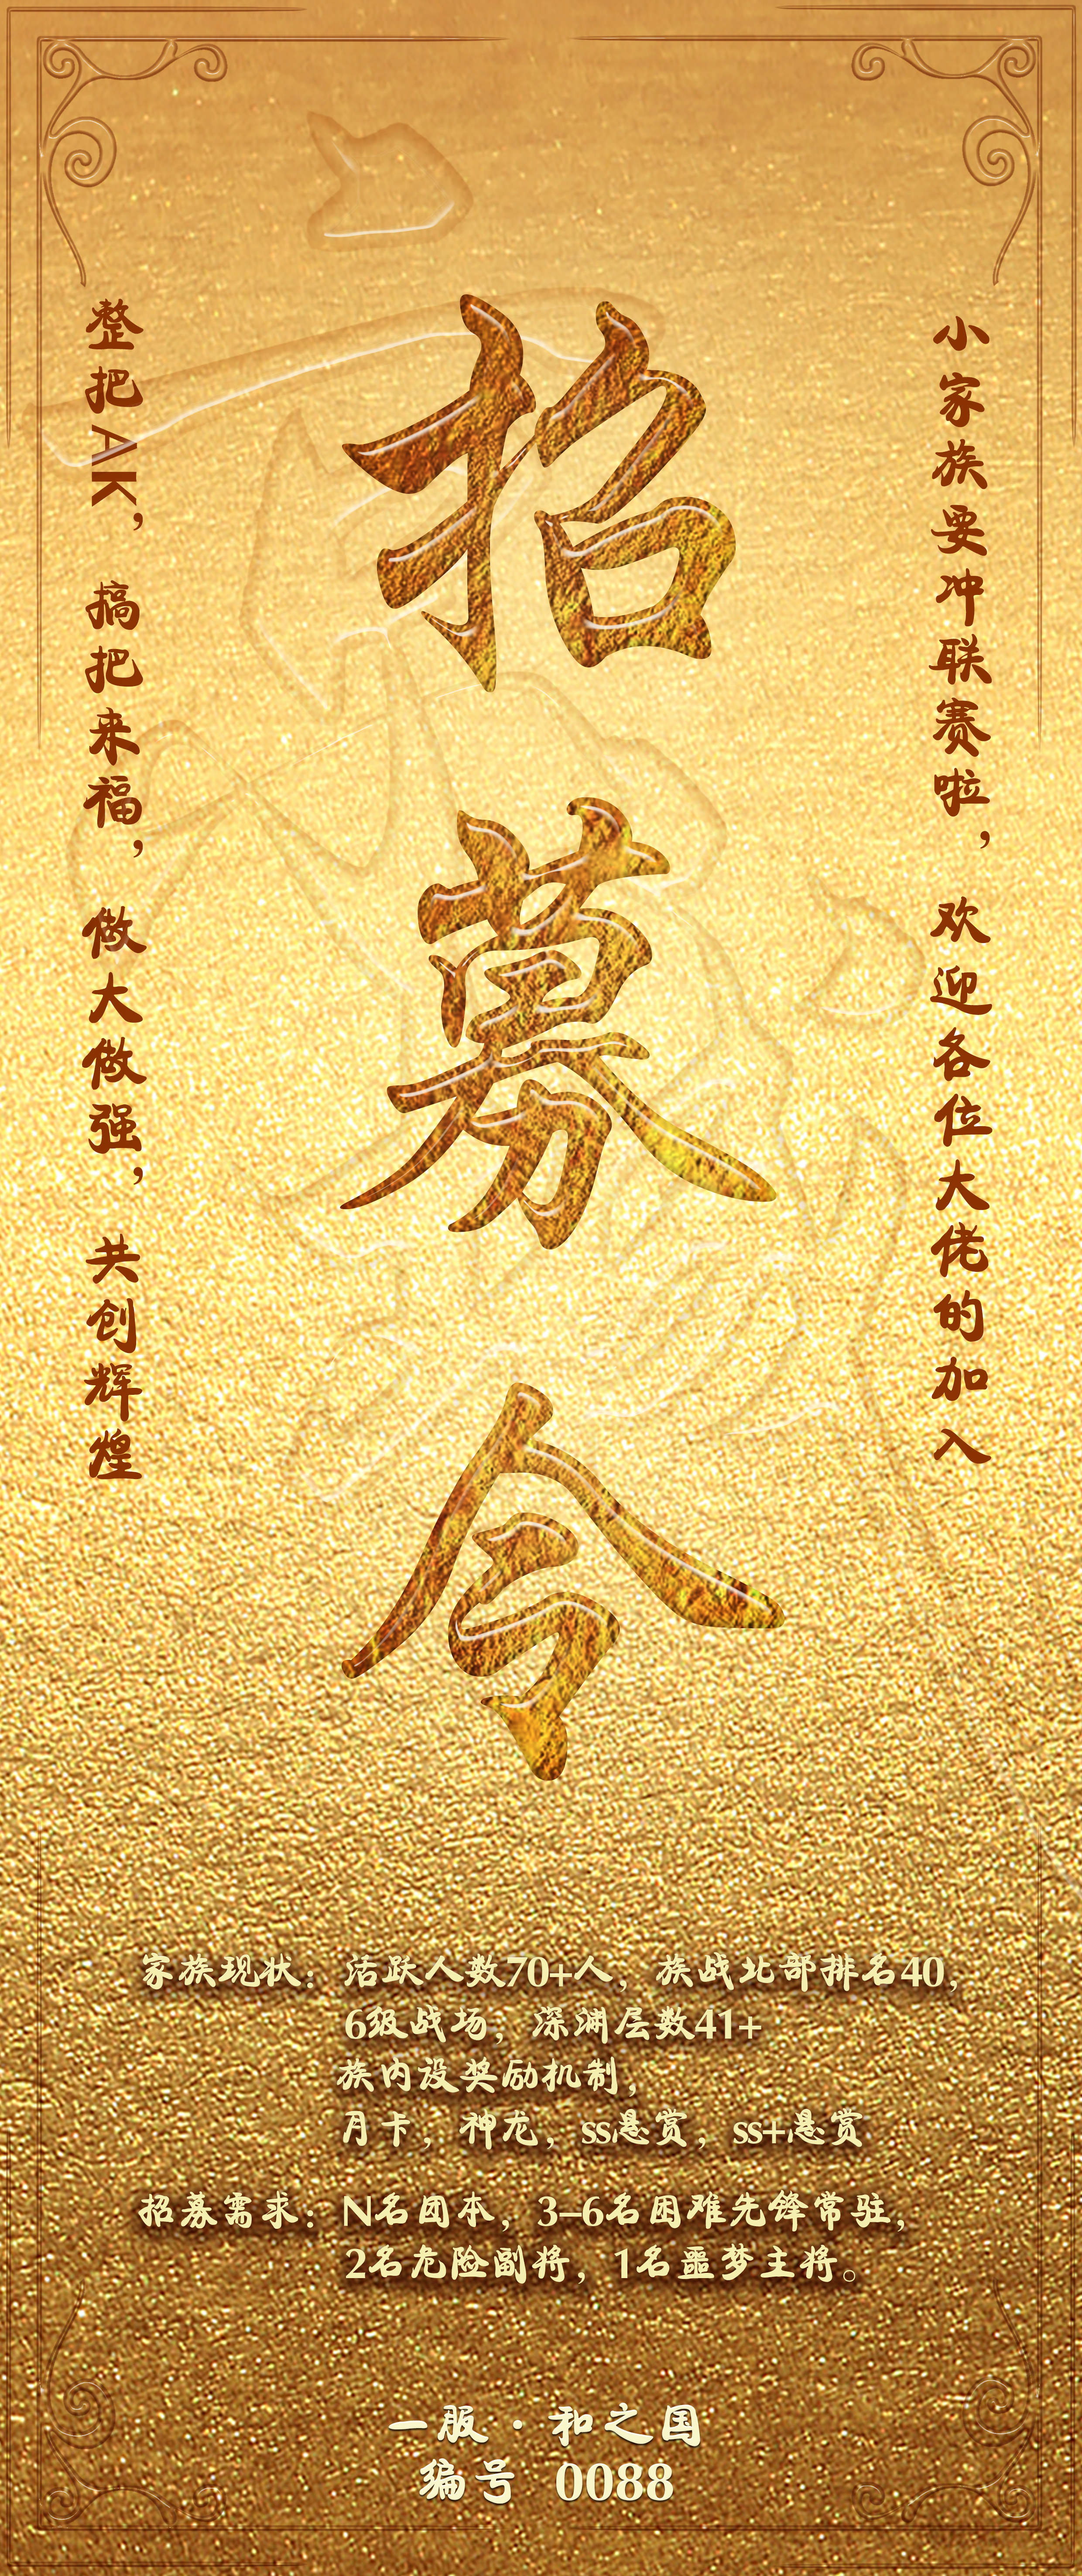 招募令
小家族要冲联赛啦，欢迎各位大佬的加入
整把AK，搞把来福，做大做强，共创辉煌
家族现状：活跃人数70+人，族战北部排名40，
6级战场，深渊层数41+
族内设奖励机制，
月卡，神龙，ss悬赏，ss+悬赏
招募需求：N名团本，3-6名困难先锋常驻，
2名危险副将，1名噩梦主将。
一服·和之国
编号 0088